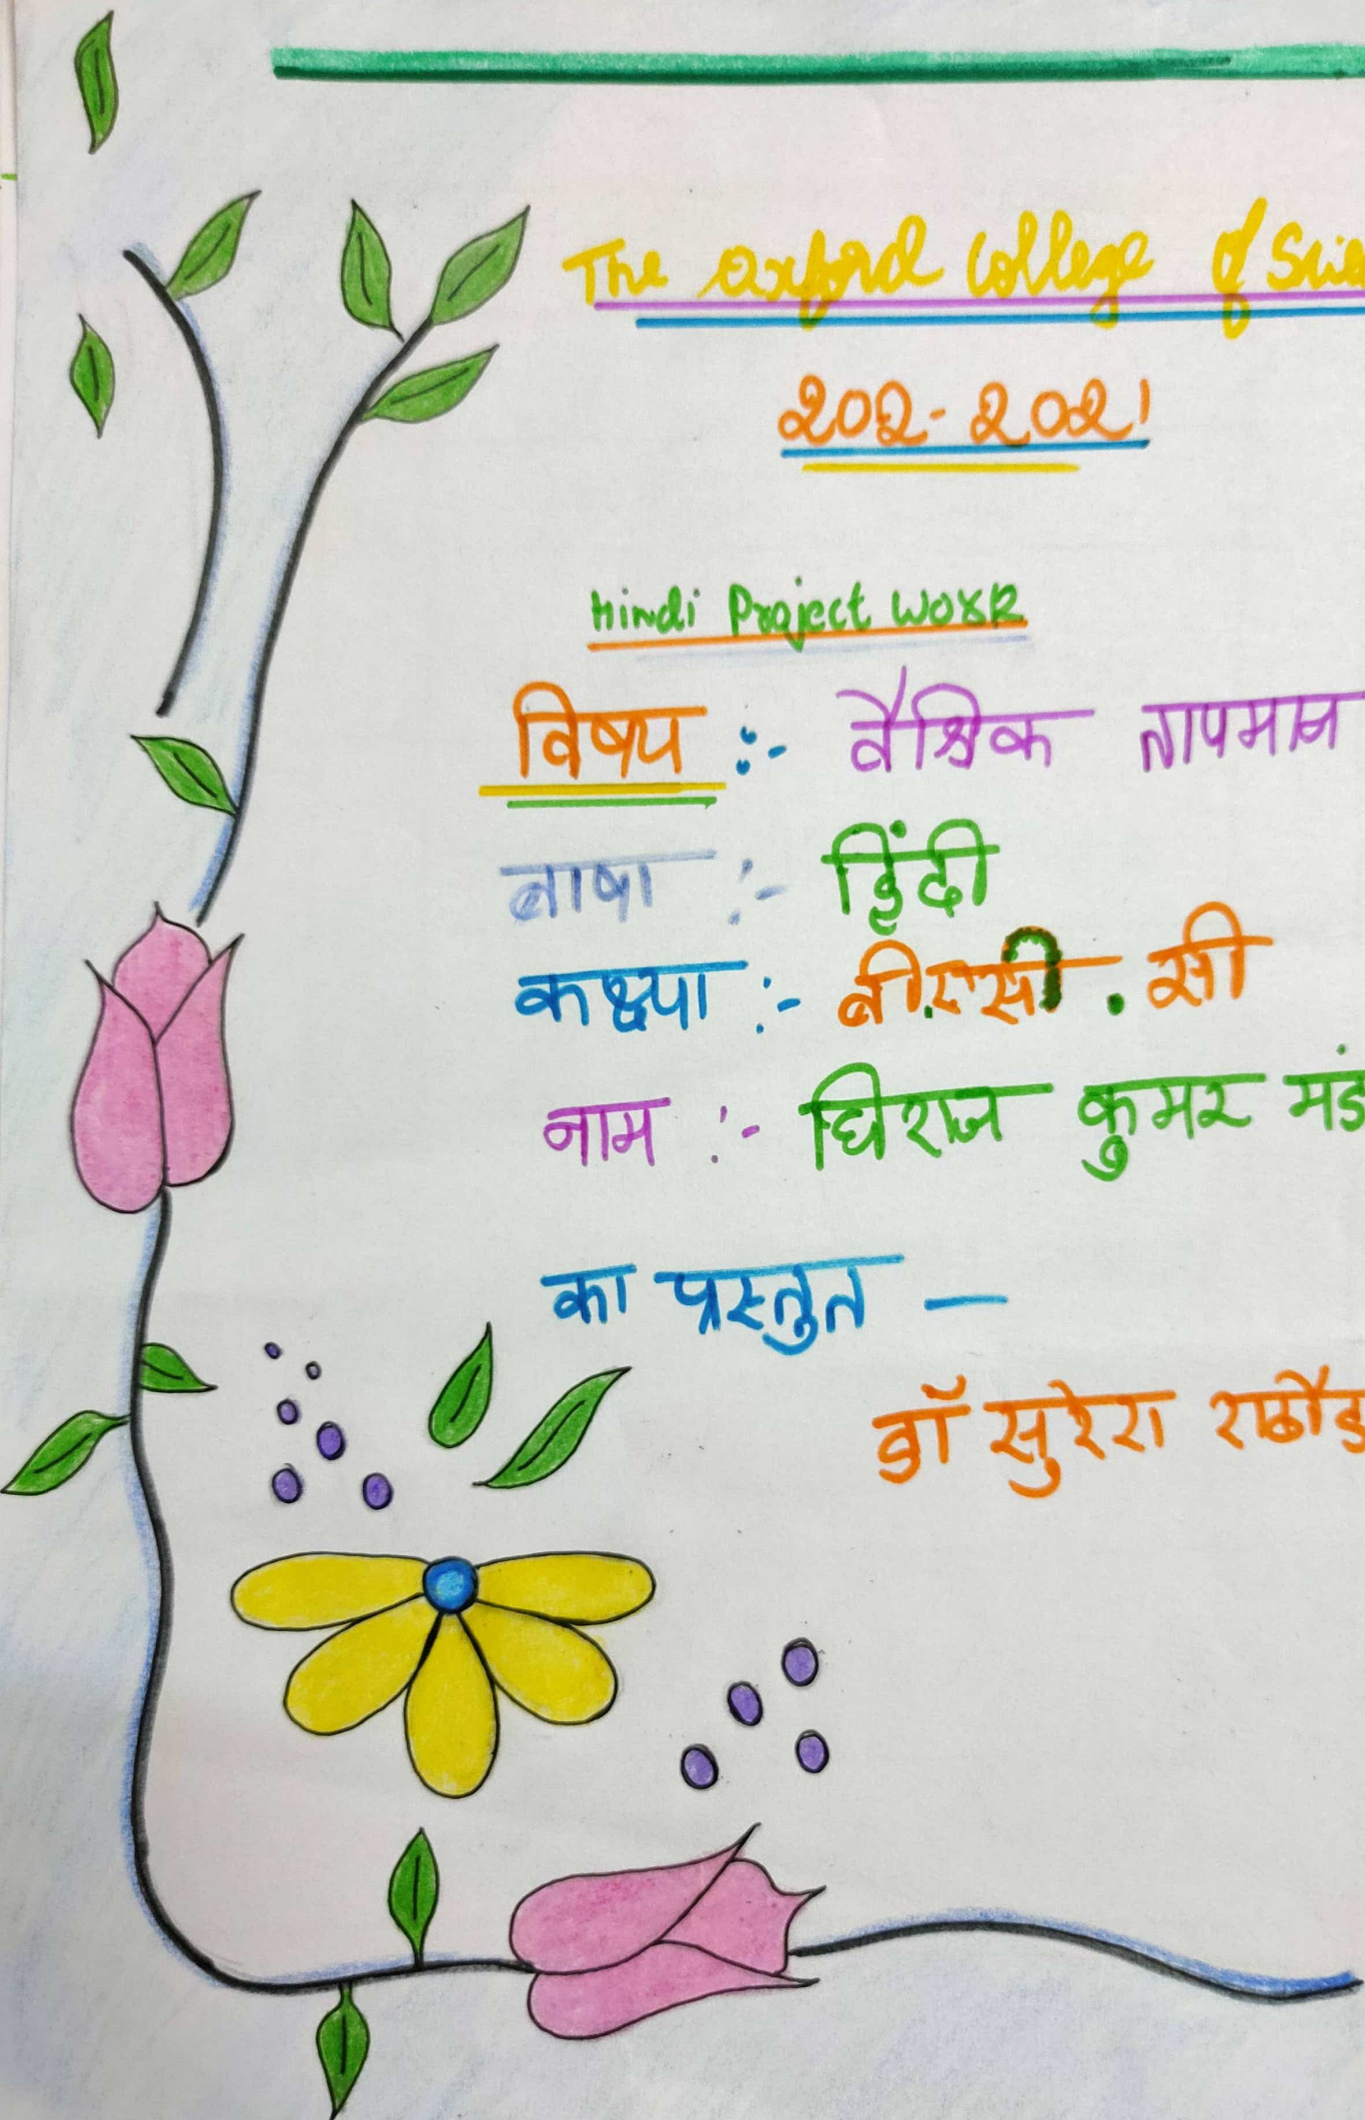 The Oxford College of Scie
202-2021
Hindi Project Work
विषय :- वैश्विक तापमान
भाषा :- हिंदी
कक्ष्या :- बी.एसी . सी
नाम :- धिराज कुमर मंड
का प्रस्तुत —
डॉ सुरेश राठौड